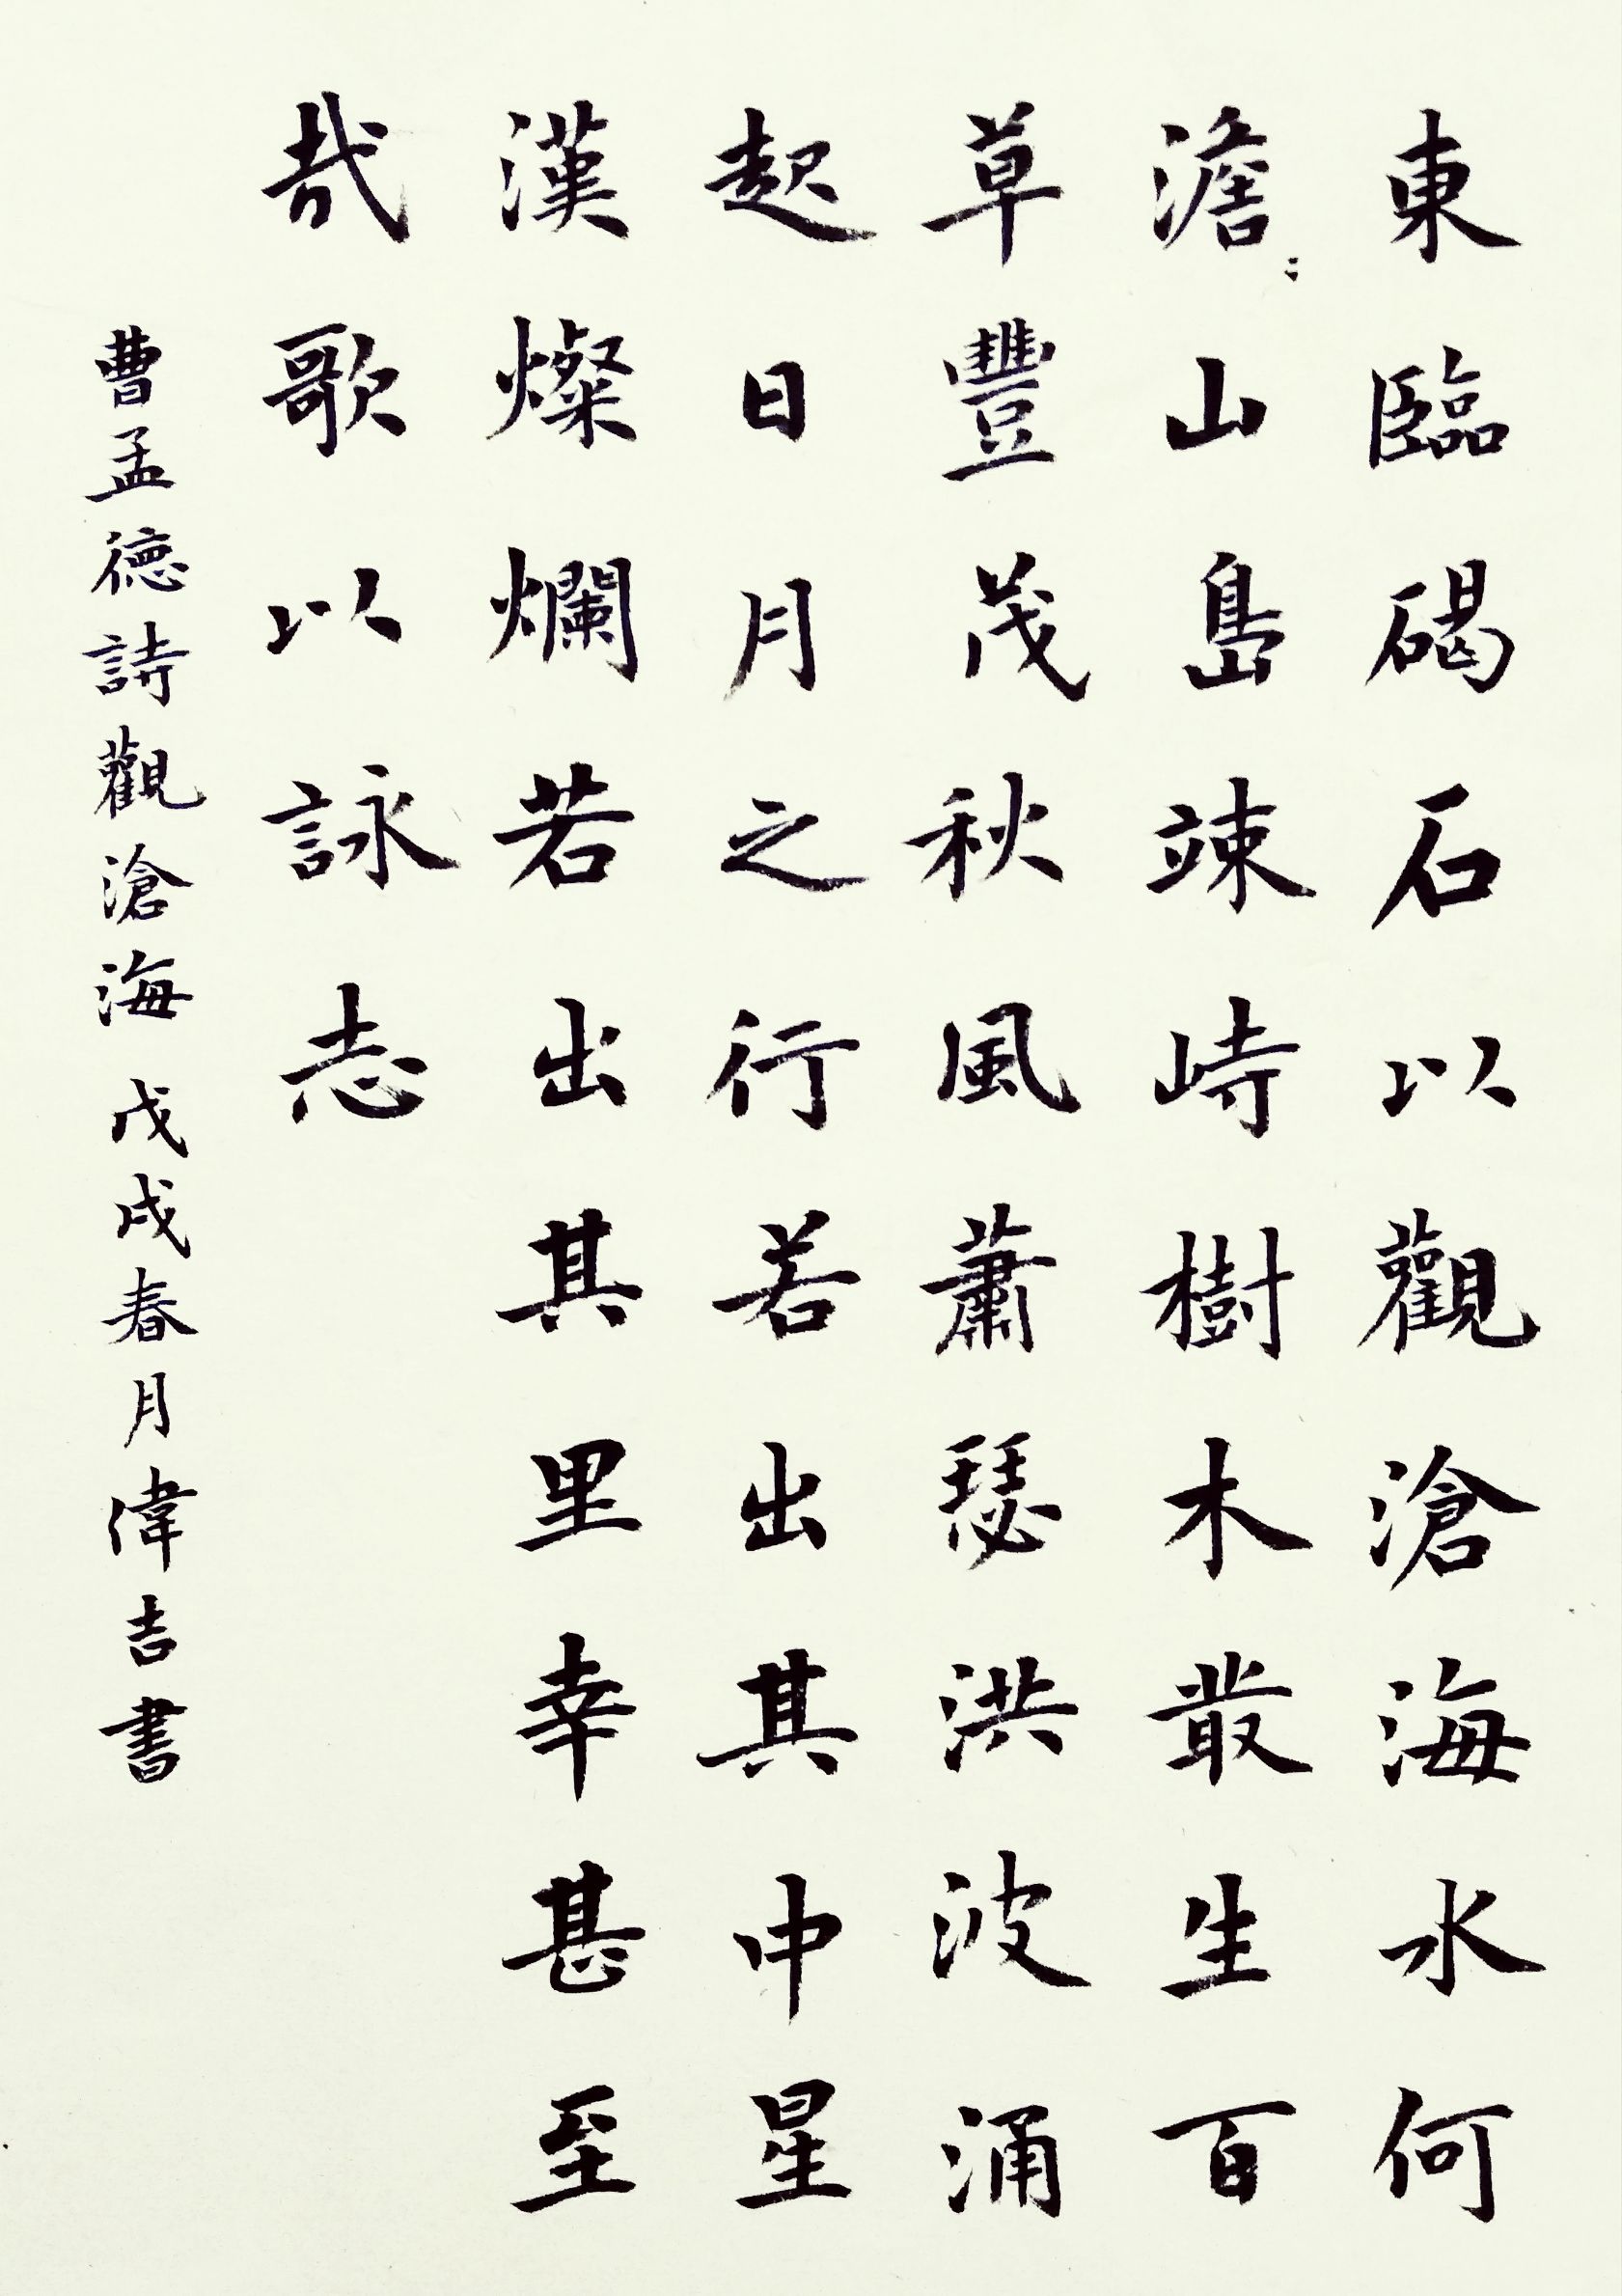 東臨碣石以觀滄海水何
澹〻山島竦峙樹木叢生百
草豐茂秋風蕭瑟洪波涌
起日月之行若出其中星
漢燦爛若出其里幸甚至
哉歌以詠志
曹孟德詩觀滄海戊戌春月偉吉書